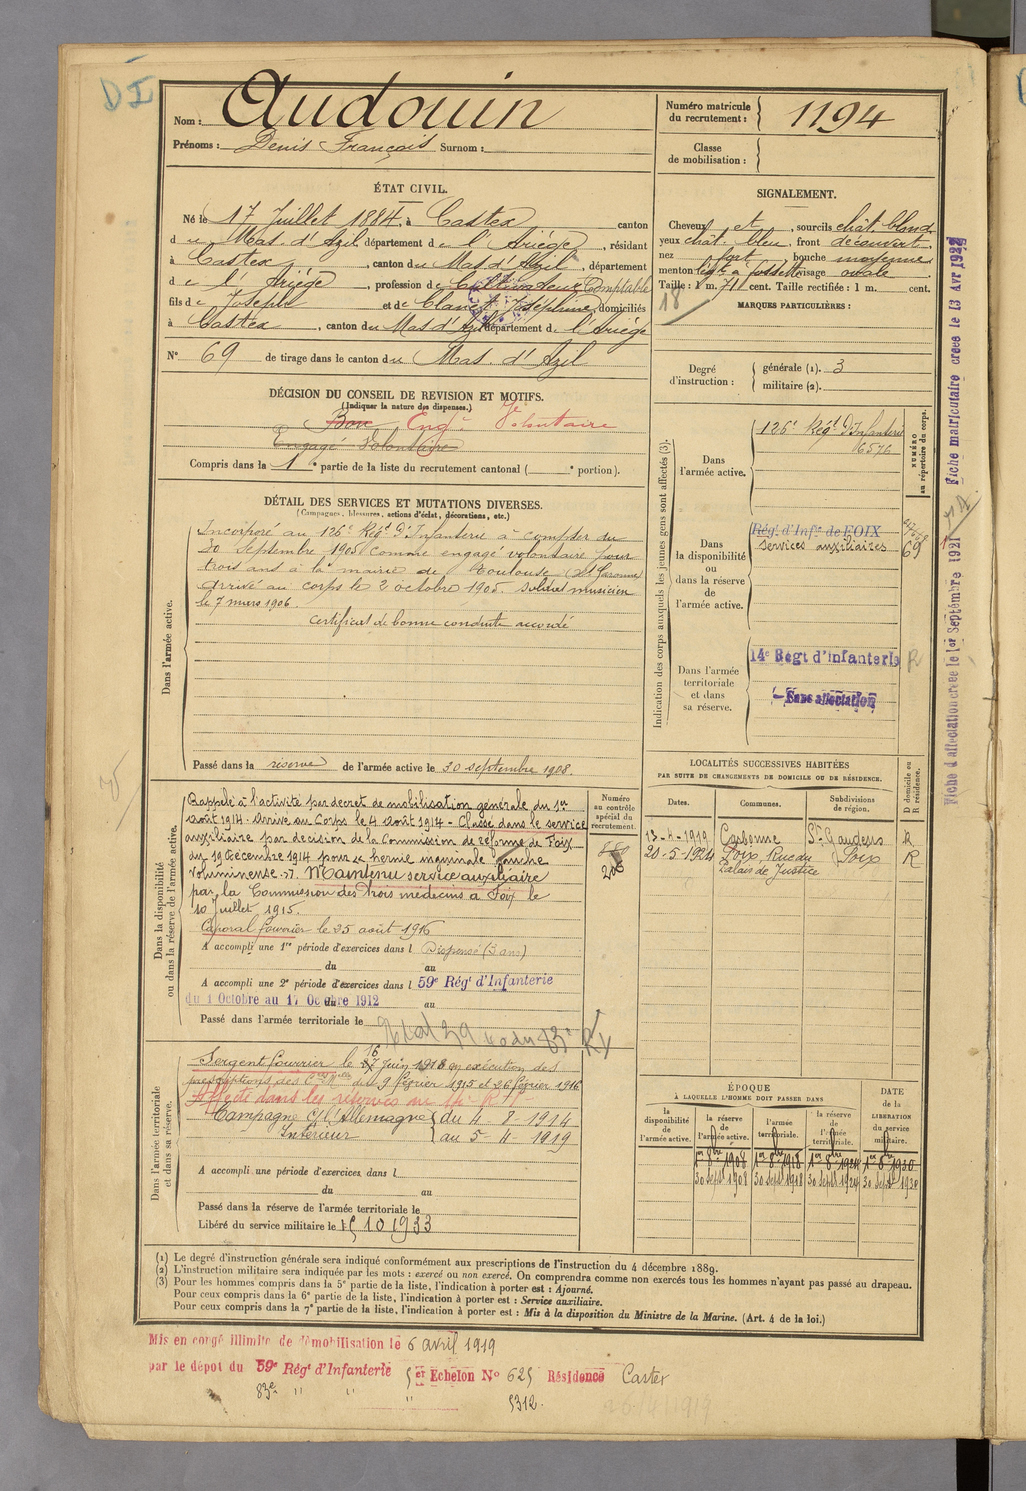 DI
Nom : Audouin
Prénoms : Denis François Surnom :
Numéro matricule du recrutement : 1194
Classe de mobilisation :
ÉTAT CIVIL.
Né le 17 Juillet 1884, à Castex canton
du Mas d'Azil département de l'Ariége, résidant
à Castex, canton du Mas d'Azil, département
de l'Ariége, profession de Cultivateur Comptable
fils de Joseph et de Clanet Joséphine, domiciliés
à Castex, canton du Mas d'Azil département de l'Ariége
N° 69 de tirage dans le canton du Mas d'Azil
SIGNALEMENT.
Cheveux et, sourcils chât. blond
yeux chât. bleu, front découvert
nez fort, bouche moyenne
menton à fossette visage ovale
Taille : 1 m. 71 cent. Taille rectifiée : 1 m. cent.
18
MARQUES PARTICULIÈRES :
Degré d'instruction : générale (1). 3
militaire (2).
DÉCISION DU CONSEIL DE REVISION ET MOTIFS.
(Indiquer la nature des dispenses.)
Bon Engé Volontaire
Engagé Volontaire
Compris dans la 1e partie de la liste du recrutement cantonal ( e portion).
DÉTAIL DES SERVICES ET MUTATIONS DIVERSES.
(Campagnes, blessures, actions d'éclat, décorations, etc.)
Dans l'armée active.
Incorporé au 126e Régt d'Infanterie à compter du
30 Septembre 1905 comme engagé volontaire pour
trois ans à la mairie de Toulouse (Hte Garonne)
arrivé au corps le 2 octobre 1905. Soldat musicien
le 7 mars 1906.
Certificat de bonne conduite accordé
Passé dans la réserve de l'armée active le 30 septembre 1908.
Indication des corps auxquels les jeunes gens sont affectés (3).
NUMÉRO au répertoire du corps.
Dans l'armée active.
126e Régt d'Infanterie
6576
Dans la disponibilité ou dans la réserve de l'armée active.
Régt d'Infie de FOIX
services auxiliaires 69
Dans l'armée territoriale et dans sa réserve.
14e Régt d'Infanterie R
Sans affectation
Fiche d'affectation créée le 1er Septembre 1921
Fiche matriculaire créée le 13 Avr 1929
LOCALITÉS SUCCESSIVES HABITÉES
PAR SUITE DE CHANGEMENTS DE DOMICILE OU DE RÉSIDENCE.
Dates. Communes. Subdivisions de région. D domicile ou R résidence.
13-4-1919 Carbonne St Gaudens R
20-5-1924 Foix, Rue du Palais de Justice Foix R
Dans la disponibilité ou dans la réserve de l'armée active.
Rappelé à l'activité par décret de mobilisation générale du 1er
août 1914. Arrivé au Corps le 4 août 1914 - Classé dans le service
auxiliaire par décision de la Commission de réforme de Foix
du 19 Décembre 1914 pour hernie inguinale gauche
volumineuse. Maintenu service auxiliaire
par la Commission des trois médecins à Foix le
10 juillet 1915.
Caporal fourrier le 25 août 1916
Numéro au contrôle spécial du recrutement.
206
A accompli une 1re période d'exercices dans l Dispensé (3 ans)
du au
A accompli une 2e période d'exercices dans l 59e Régt d'Infanterie
du 1 Octobre au 17 Octobre 1912 au
Passé dans l'armée territoriale le
Dans l'armée territoriale et dans sa réserve.
Sergent fourrier le 16 Juin 1918 en exécution des
prescriptions des du 9 février 1915 et 26 février 1916
Affecté dans les réserves au
Campagne c/ l'Allemagne du 4-8-1914
Intérieur au 5-4-1919
A accompli une période d'exercices dans l
du au
Passé dans la réserve de l'armée territoriale le
Libéré du service militaire le 15 10 1933
ÉPOQUE
À LAQUELLE L'HOMME DOIT PASSER DANS
la disponibilité de l'armée active. la réserve de l'armée active. l'armée territoriale. la réserve de l'armée territoriale. DATE de la LIBÉRATION du service militaire.
1er 8bre 1908 1er 8bre 1918 1er 8bre 1924 1er 8bre 1930
30 sept 1908 30 sept 1918 30 sept 1924 30 sept 1930
(1) Le degré d'instruction générale sera indiqué conformément aux prescriptions de l'instruction du 4 décembre 1889.
(2) L'instruction militaire sera indiquée par les mots : exercé ou non exercé. On comprendra comme non exercés tous les hommes n'ayant pas passé au drapeau.
(3) Pour les hommes compris dans la 5e partie de la liste, l'indication à porter est : Ajourné.
Pour ceux compris dans la 6e partie de la liste, l'indication à porter est : Service auxiliaire.
Pour ceux compris dans la 7e partie de la liste, l'indication à porter est : Mis à la disposition du Ministre de la Marine. (Art. 4 de la loi.)
Mis en congé illimité de démobilisation le 6 avril 1919
par le dépôt du 59e Régt d'Infanterie 5e Echelon N° 625 Résidence Castex
83e " " " 5312.